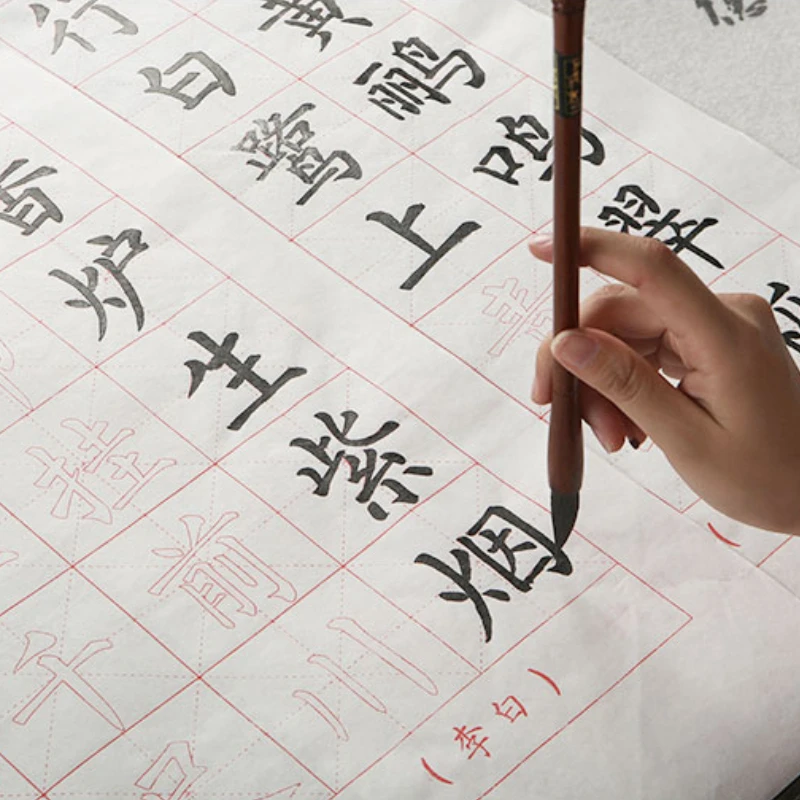 黄鹂鸣翠柳
行白鹭上青
香炉生紫烟
挂前川
千
(李白)